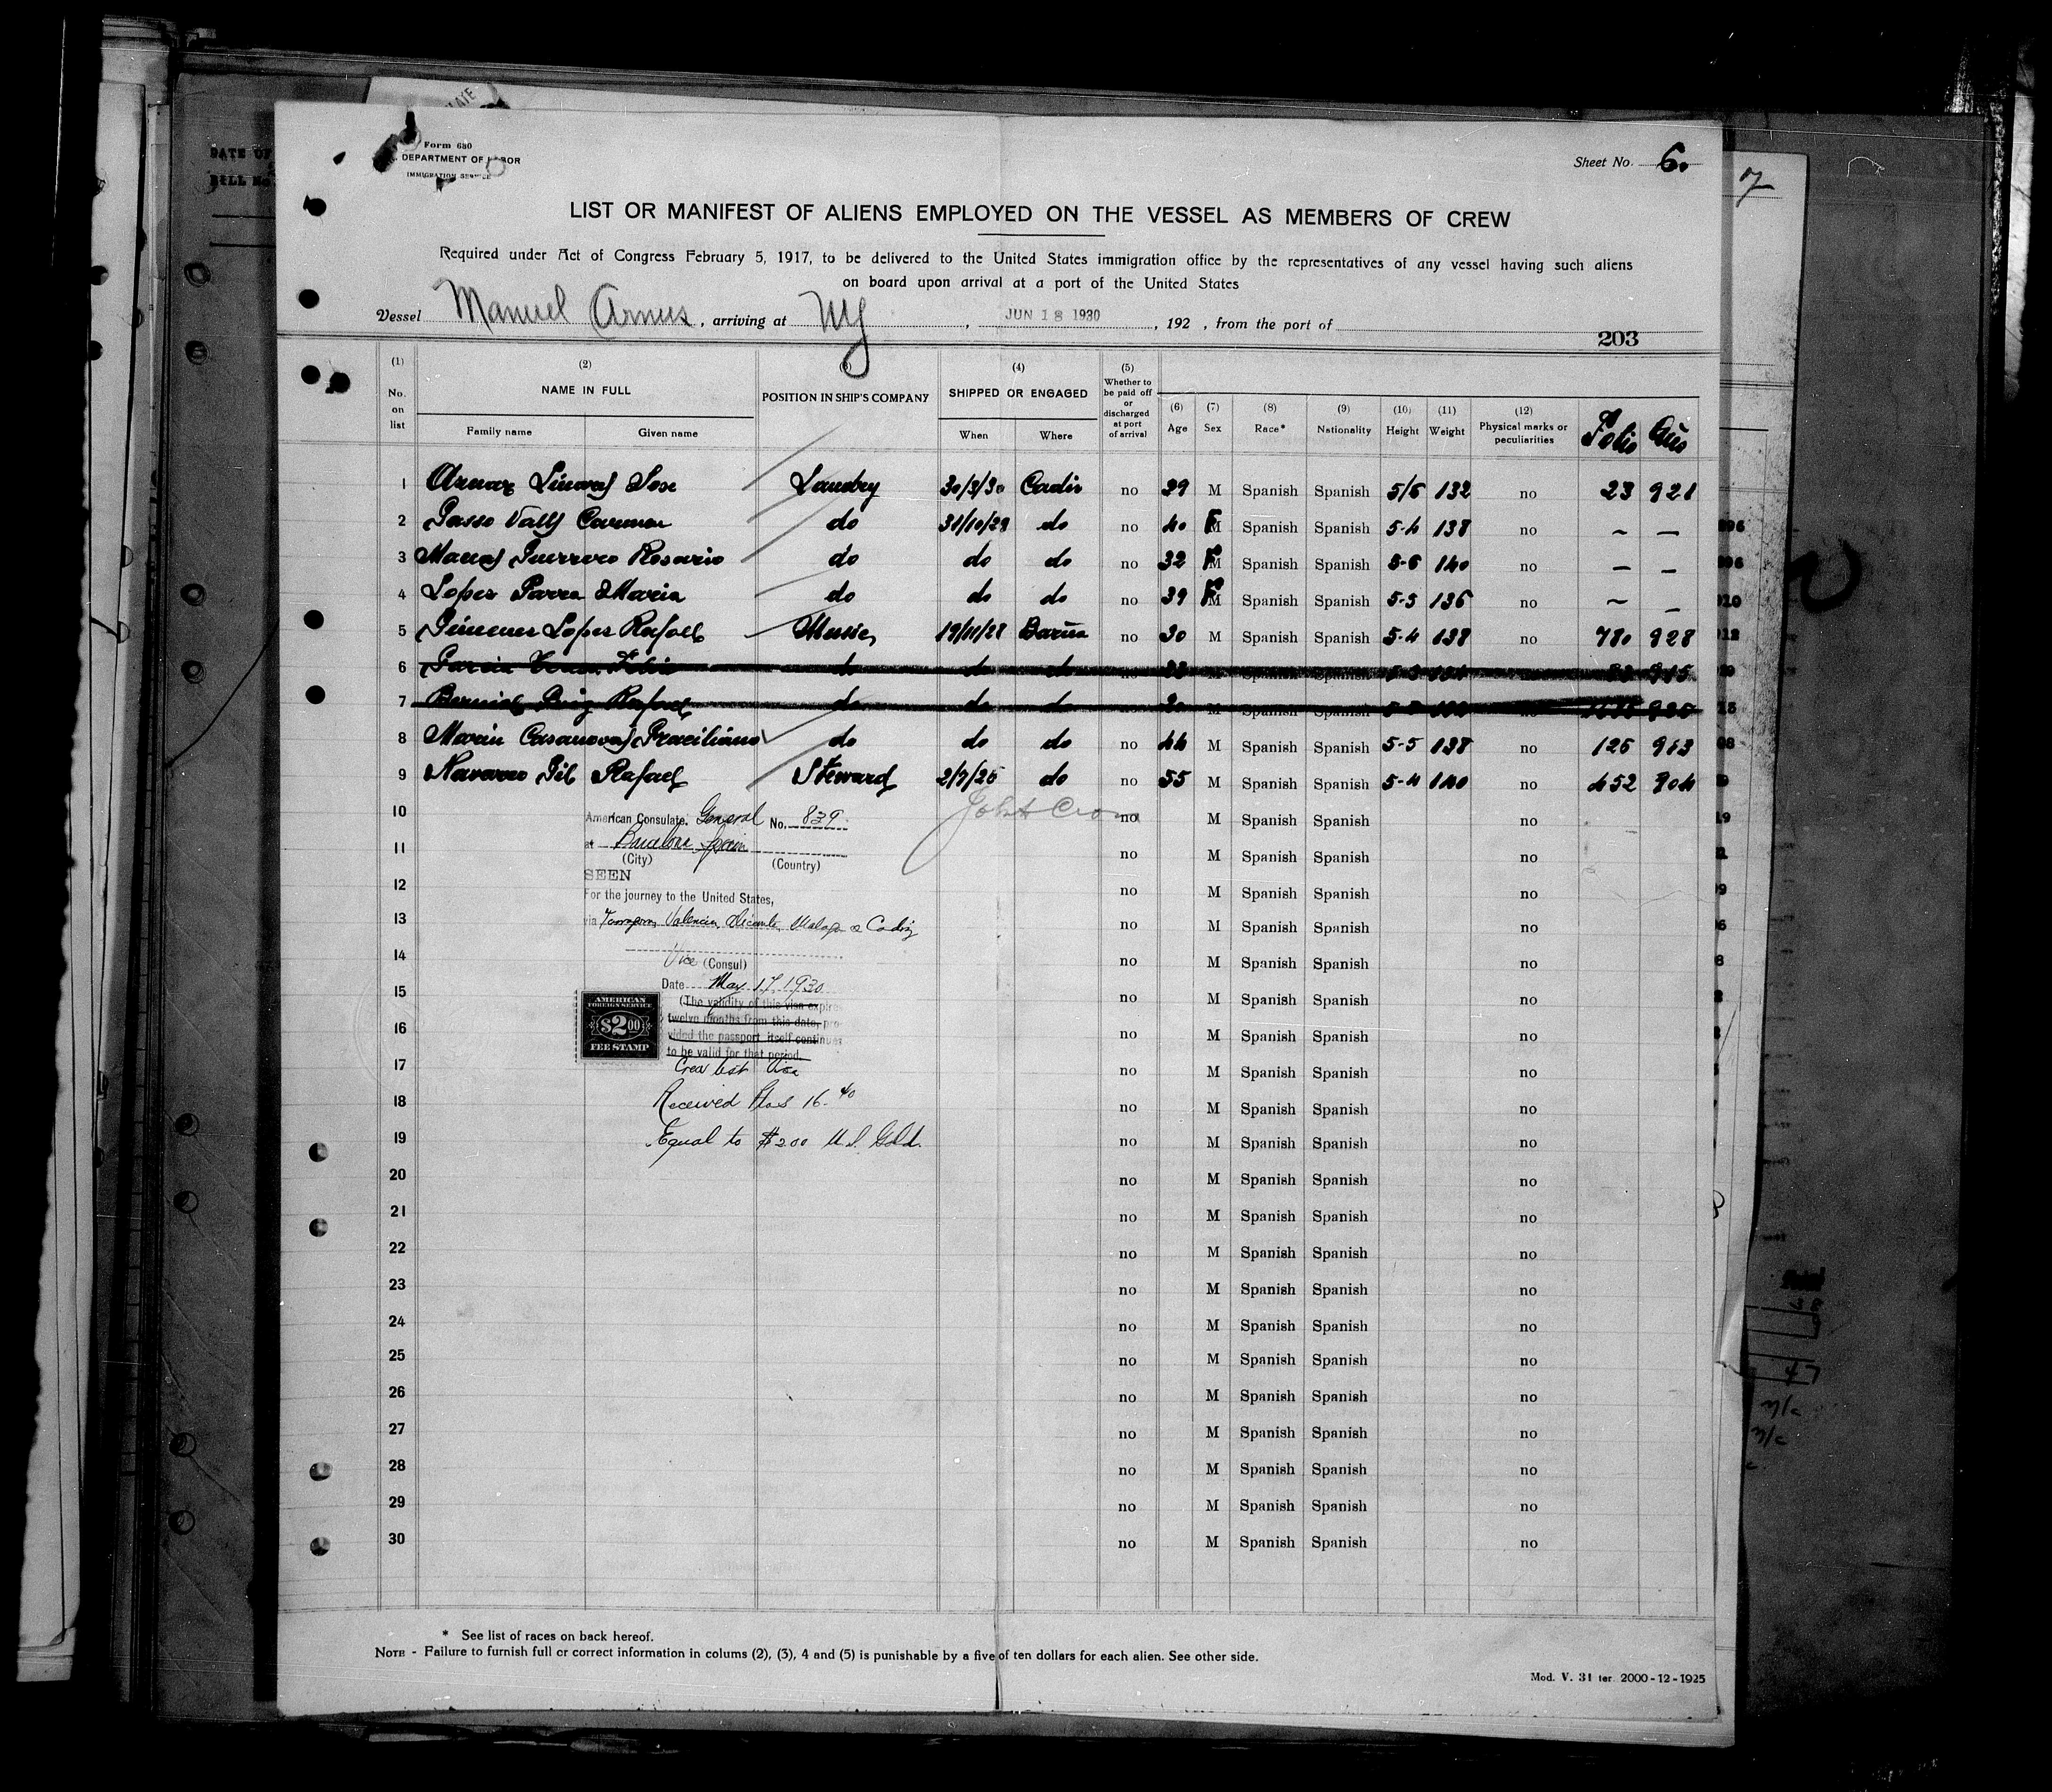 Form 680
DEPARTMENT OF LABOR
IMMIGRATION SERVICE
Sheet No. 6.
LIST OR MANIFEST OF ALIENS EMPLOYED ON THE VESSEL AS MEMBERS OF CREW
Required under Act of Congress February 5, 1917, to be delivered to the United States immigration office by the representatives of any vessel having such aliens
on board upon arrival at a port of the United States
Vessel Manuel Arnus, arriving at NY, JUN 18 1930, 192 , from the port of
203
(1) (2) (3) (4) (5)
No. on list NAME IN FULL POSITION IN SHIP'S COMPANY SHIPPED OR ENGAGED Whether to be paid off or discharged at port of arrival
(6) (7) (8) (9) (10) (11) (12)
Family name Given name When Where Age Sex Race* Nationality Height Weight Physical marks or peculiarities Folio
1 Aznar Linares Jose Laundry 30/3/30 Cadiz no 39 M Spanish Spanish 5/6 132 no 23 921
2 Valls Carmen do 31/10/29 do no 40 F Spanish Spanish 5-4 138 no ~ —
3 Guerrero Rosario do do do no 32 F Spanish Spanish 5-6 140 no — —
4 Lopez Parra Maria do do do no 39 F Spanish Spanish 5-5 136 no ~ —
5 Jimenez Lopez Rafael Music 19/11/28 Barna no 30 M Spanish Spanish 5-4 138 no 780 928
6 do do do M Spanish Spanish
7 Puig Rafael do do do M Spanish Spanish no
8 Marin Casanovas Graciliano do do do no 44 M Spanish Spanish 5-5 138 no 126 913
9 Navarro Gil Rafael Steward 2/7/26 do no 55 M Spanish Spanish 5-4 140 no 452 904
10 no M Spanish Spanish no
American Consulate General No. 839
11 no M Spanish Spanish no
at Barcelona Spain
(City) (Country)
SEEN
12 no M Spanish Spanish no
For the journey to the United States,
13 no M Spanish Spanish no
via Tarragona, Valencia, Alicante, Malaga & Cadiz
14 no M Spanish Spanish no
Vice (Consul)
Date May 17, 1930
15 no M Spanish Spanish no
AMERICAN
FOREIGN SERVICE
$2.00
FEE STAMP
(The validity of this visa expires
twelve months from this date, pro-
16 no M Spanish Spanish no
vided the passport itself continues
to be valid for that period.
17 no M Spanish Spanish no
Crew list visa
18 no M Spanish Spanish no
Received Ptas 16.40
19 no M Spanish Spanish no
Equal to $2.00 U.S. Gold.
20 no M Spanish Spanish no
21 no M Spanish Spanish no
22 no M Spanish Spanish no
23 no M Spanish Spanish no
24 no M Spanish Spanish no
25 no M Spanish Spanish no
26 no M Spanish Spanish no
27 no M Spanish Spanish no
28 no M Spanish Spanish no
29 no M Spanish Spanish no
30 no M Spanish Spanish no
* See list of races on back hereof.
NOTE - Failure to furnish full or correct information in colums (2), (3), 4 and (5) is punishable by a five of ten dollars for each alien. See other side.
Mod. V. 31 ter. 2000-12-1925